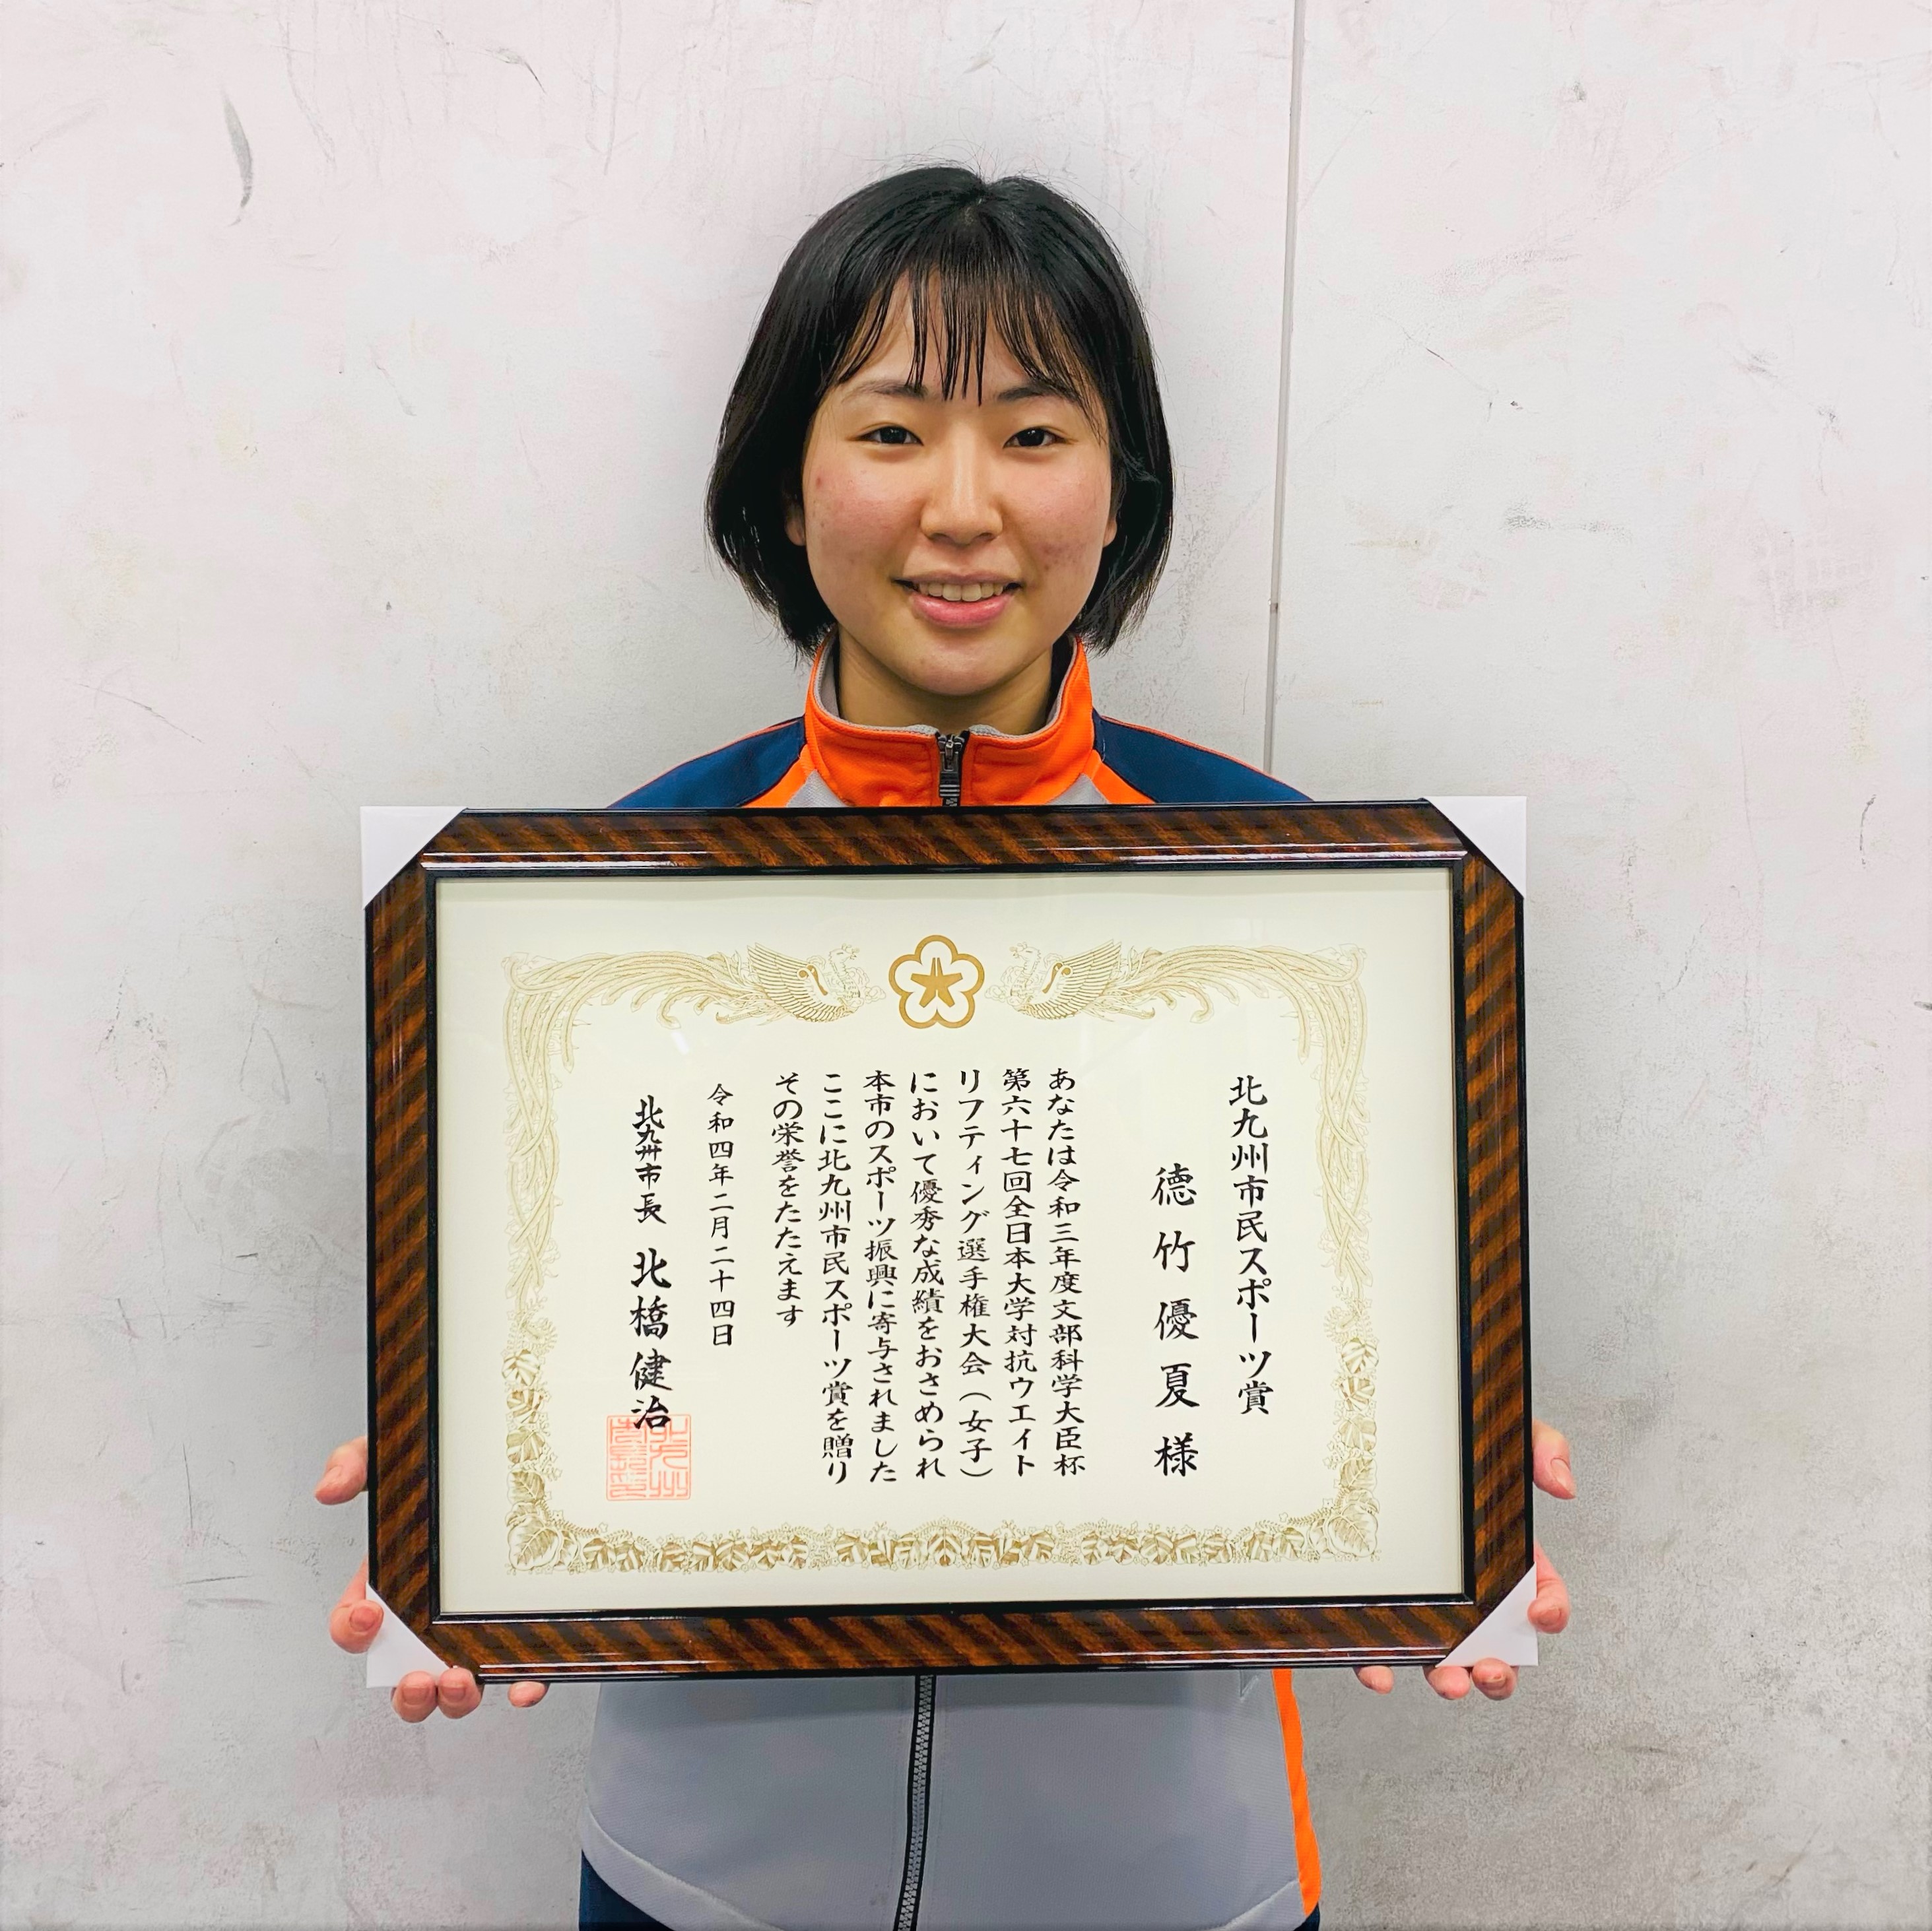 北九州市民スポーツ賞
徳竹優夏様
あなたは令和三年度文部科学大臣杯
第六十七回全日本大学対抗ウエイト
リフティング選手権大会（女子）
において優秀な成績をおさめられ
本市のスポーツ振興に寄与されました
ここに北九州市民スポーツ賞を贈り
その栄誉をたたえます
令和四年二月二十四日
北九州市長 北橋健治